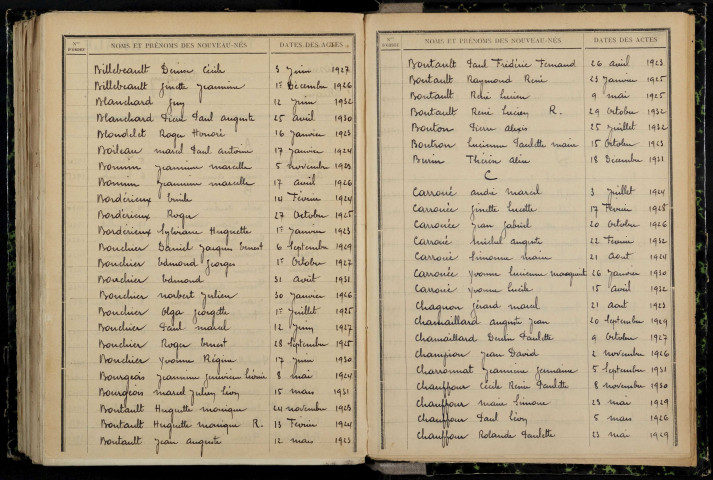 Nos D'ORDRE NOMS ET PRÉNOMS DES NOUVEAU-NÉS DATES DES ACTES
Billebeault Denise Cécile 3 Juin 1927
Billebeault Ginette Jeannine 1er Décembre 1926
Blanchard Guy 12 Juin 1932
Blanchard Pierre Paul auguste 25 avril 1930
Blondelet Roger Honoré 16 Janvier 1923
Boileau marcel Paul antoine 17 Janvier 1924
Bonnin Jeannine marcelle 5 novembre 1923
Bonnin Jeannine marcelle 17 avril 1926
Bordérieux Emile 14 Février 1924
Bordérieux Roger 27 Octobre 1925
Bordérieux Sylviane Huguette 1er Janvier 1923
Bouchier Daniel Jacques Ernest 6 Septembre 1929
Bouchier Edmond Georges 1er Octobre 1927
Bouchier Edmond 31 août 1931
Bouchier norbert Julien 30 Janvier 1926
Bouchier Olga Georgette 1er Juillet 1925
Bouchier Paul marcel 12 Juin 1927
Bouchier Roger Ernest 28 Septembre 1925
Bouchier Yvonne Régine 17 Juin 1930
Bourgeois Jeannine Geneviève Léonie 8 mai 1924
Bourgeois marcel Julien Léon 15 mars 1931
Boutault Huguette monique 24 novembre 1923
Boutault Huguette monique R. 13 Février 1924
Boutault Jean auguste 12 mars 1923
Nos D'ORDRE NOMS ET PRÉNOMS DES NOUVEAU-NÉS DATES DES ACTES
Boutault Paul Frédéric Fernand 26 avril 1923
Boutault Raymond René 23 Janvier 1925
Boutault René Lucien 9 mai 1925
Boutault René Lucien R. 29 Octobre 1932
Bouton Pierre alexis 25 Juillet 1932
Boutron Lucienne Paulette marie 15 Octobre 1923
Burin Thérèse aline 18 Décembre 1931
C
Carroué andré marcel 3 Juillet 1924
Carrouée Ginette Lucette 17 Février 1928
Carrouée Jean Gabriel 20 Octobre 1926
Carroué michel auguste 22 Février 1932
Carroué Simonne marie 21 aout 1924
Carrouée Yvonne Lucienne 26 Janvier 1930
Carroué Yvonne Lucile 15 avril 1932
Chagnon Gérard marcel 21 aout 1923
Chamaillard auguste Jean 20 Septembre 1929
Chamaillard Denise Paulette 9 Octobre 1927
Champion Jean David 2 novembre 1926
Charronnat Jeannine Germaine 5 Septembre 1931
Chauffour Cécile Renée Paulette 8 novembre 1930
Chauffour marie Simone 23 mai 1929
Chauffour Paul Léon 5 mars 1926
Chauffour Rolande Paulette 23 mai 1929